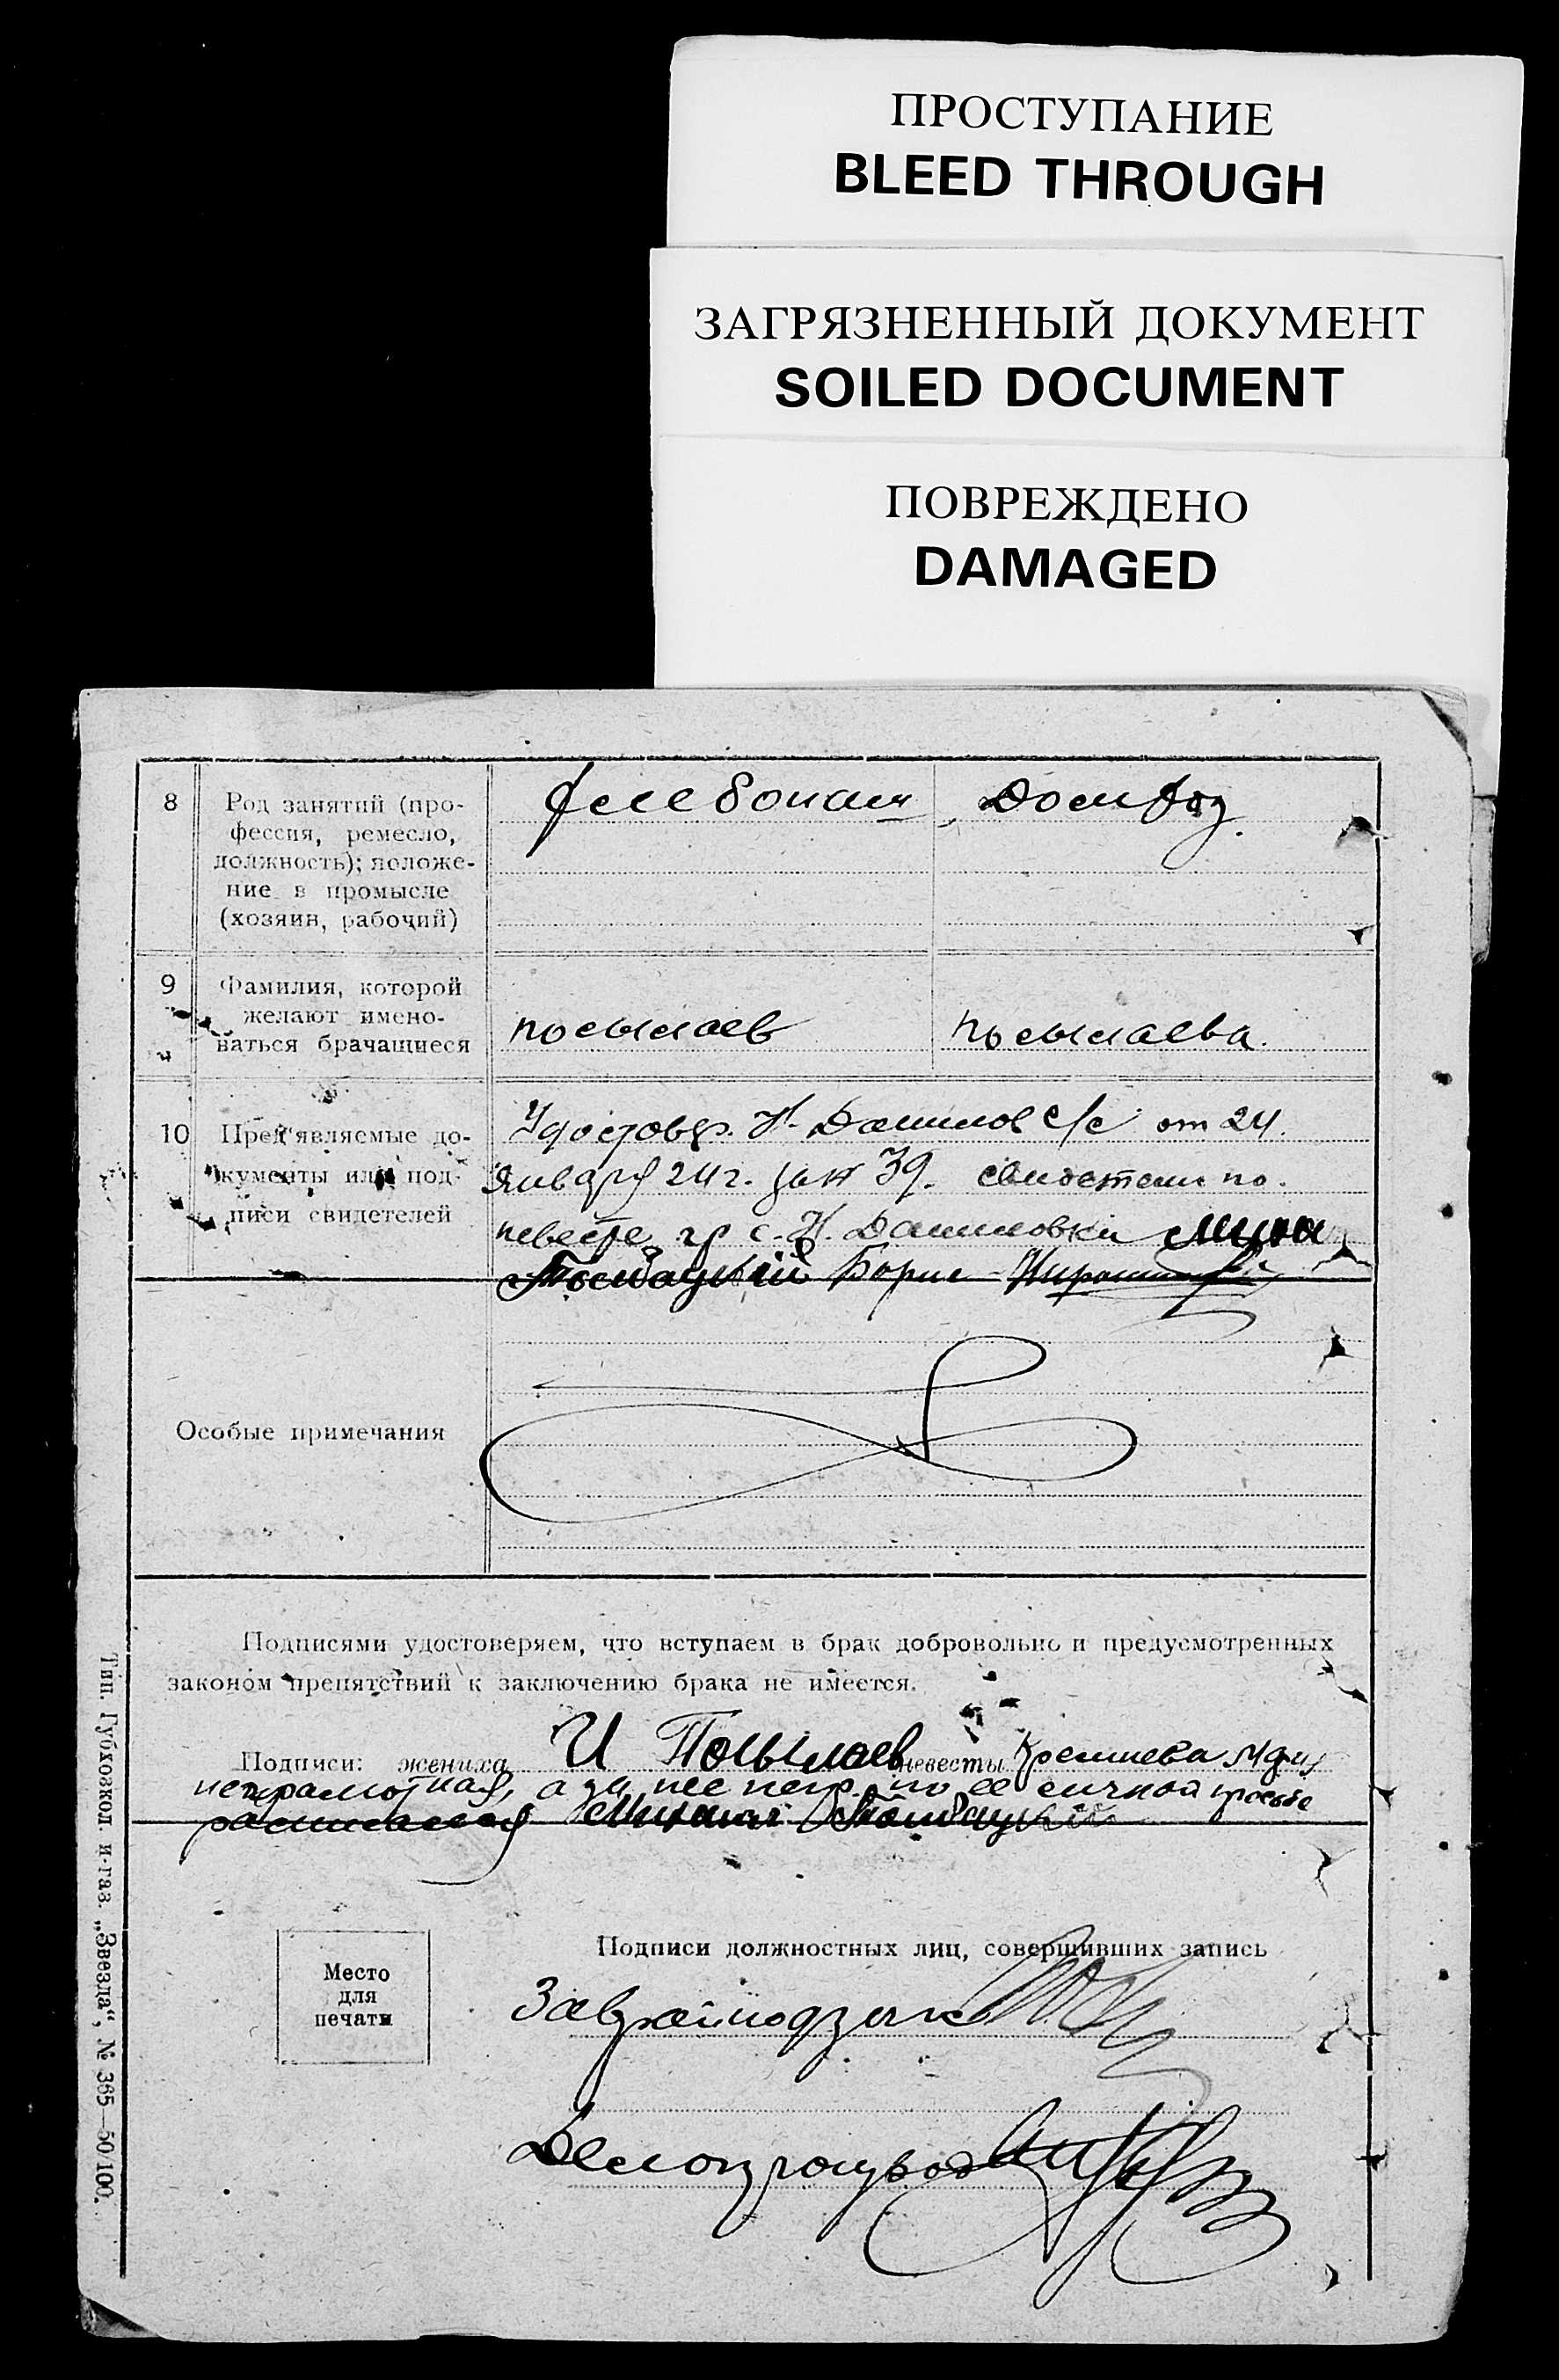 ПРОСТУПАНИЕ
BLEED THROUGH
ЗАГРЯЗНЕННЫЙ ДОКУМЕНТ
SOILED DOCUMENT
ПОВРЕЖДЕНО
DAMAGED
8 Род занятий (про-
фессия, ремесло,
должность); положе-
ние в промысле
(хозяин, рабочий)
хлебопаш Домхоз.
9 Фамилия, которой
желают имено-
ваться брачащиеся
посылаев посылаева.
10 Пред'являемые до-
кументы или под-
писи свидетелей
Удостовер. Н-Данилов с/с от 24.
Января 24 г. за № 39. свидетели по.
невесте гр с. Н. Даниловки
Борис
Особые примечания
Подписями удостоверяем, что вступаем в брак добровольно и предусмотренных
законом препятствий к заключению брака не имеется.
Подписи: жениха И Посылаев невесты
неграмотная, а за нее негр. по ее личной просьбе
расписался Михаил
Подписи должностных лиц, совершивших запись
Место
для
печати
Заврайподзагс
Делопроизвод
Тип. Губхозкол. и газ. „Звезда“, № 365—50/100.